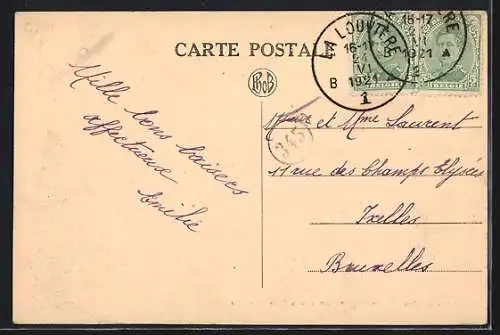 CARTE POSTALE
LA LOUVIÈRE
16-17
VI
B 1921
1
16-17
1921
345
Mille bons baisers
affectueux
Emilie
et Mme Laurent
11 rue des Champs Elysées
Ixelles
Bruxelles